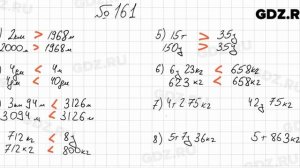 №161
GDZ.RU
) 2 км > 1968 м
2000 м > 1968 м
) 4 дм < 4 м
4 дм < 40 дм
) 3 км 94 м < 3126 м
3094 м < 3126 м
712 кг < 8 ц
712 кг < 800 кг
5) 15 т > 35 ц
150 ц > 35 ц
6) 6 ц 23 кг < 658 кг
623 кг < 658 кг
7) 4 т 275 кг 42 ц 75 кг
8) 5 т 7 ц 36 кг 5 т 863 кг
GDZ.RU